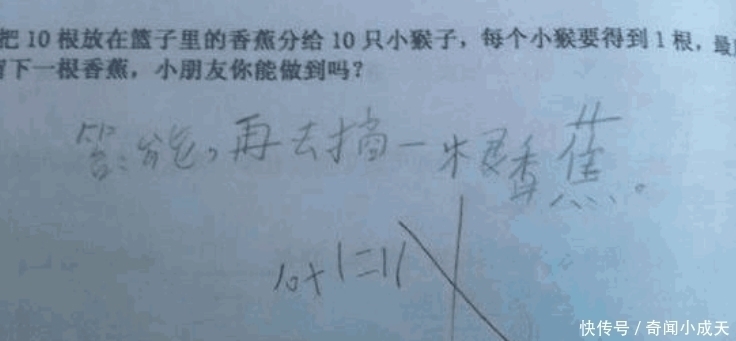 把10根放在篮子里的香蕉分给10只小猴子，每个小猴要得到1根，最
下一根香蕉，小朋友你能做到吗？
答：能，再去摘一根香蕉。
10+1=11
快传号/奇闻小成天